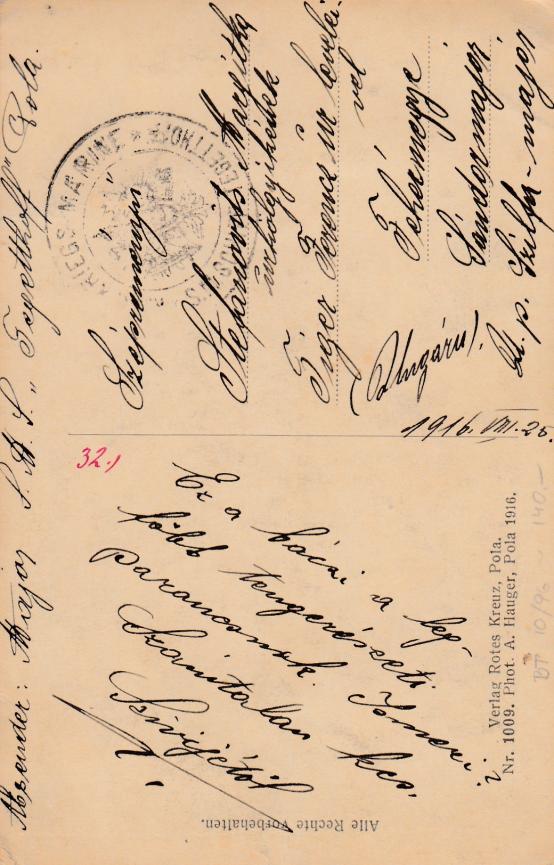 Absender: Major S. M. S. „Tegetthoff" Pola.
KRIEGS MARINE
TEGETTHOFF
Stefanovits Margitka
úrhölgyikének
Tiger Ferencz úr levelei-
vel
Fehérmegye
Sándormajor
U. p. Szilfa-major
(Ungarn).
1916. VIII. 25.
32.)
Ez a bácsi a leg-
főbb tengerészeti
parancsnok. Ismeri
Számtalan kéz
Szívéjétől
Verlag Rotes Kreuz, Pola.
Nr. 1009. Phot. A. Hauger, Pola 1916.
Alle Rechte vorbehalten.
BT 10/90 ~ 140.-